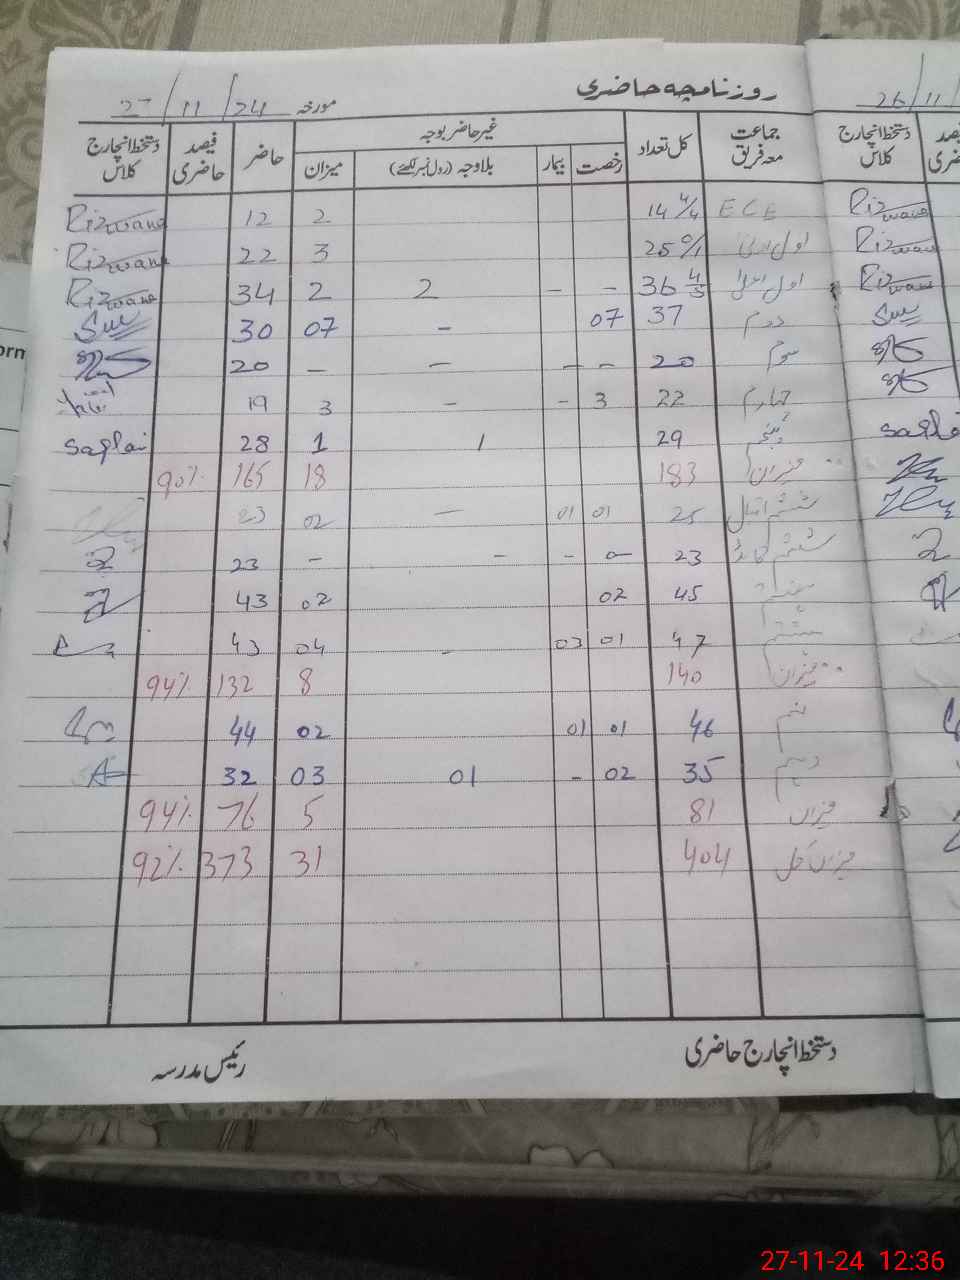 روزنامچہ حاضری
مورخہ 27/11/24
26/11/
جماعت معہ فریق کل تعداد غیر حاضر بوجہ حاضر فیصد حاضری دستخط انچارج کلاس
رخصت بیمار بلاوجہ (رول نمبر لکھئے) میزان
دستخط انچارج کلاس
ECE 14 2 12 Rizwana
Rizwana
اول ادنیٰ 25 3 22 Rizwana
Rizwana
اول اعلیٰ 36 - - 2 2 34 Rizwana
Rizwana
دوم 37 07 - 07 30
سوم 20 - - - - 20
چہارم 22 3 - - 3 19
پنجم 29 1 1 28
میزان 183 18 165 90%
ششم اقبال 25 01 01 - 02 23
ششم 23 - - - - 23
ہفتم 45 02 02 43
ہشتم 47 01 03 - 04 43
میزان 140 8 132 94%
نہم 46 01 01 02 44
دہم 35 02 - 01 03 32
میزان 81 5 76 94%
میزان کل 404 31 373 92%
دستخط انچارج حاضری رئیس مدرسہ
27-11-24 12:36